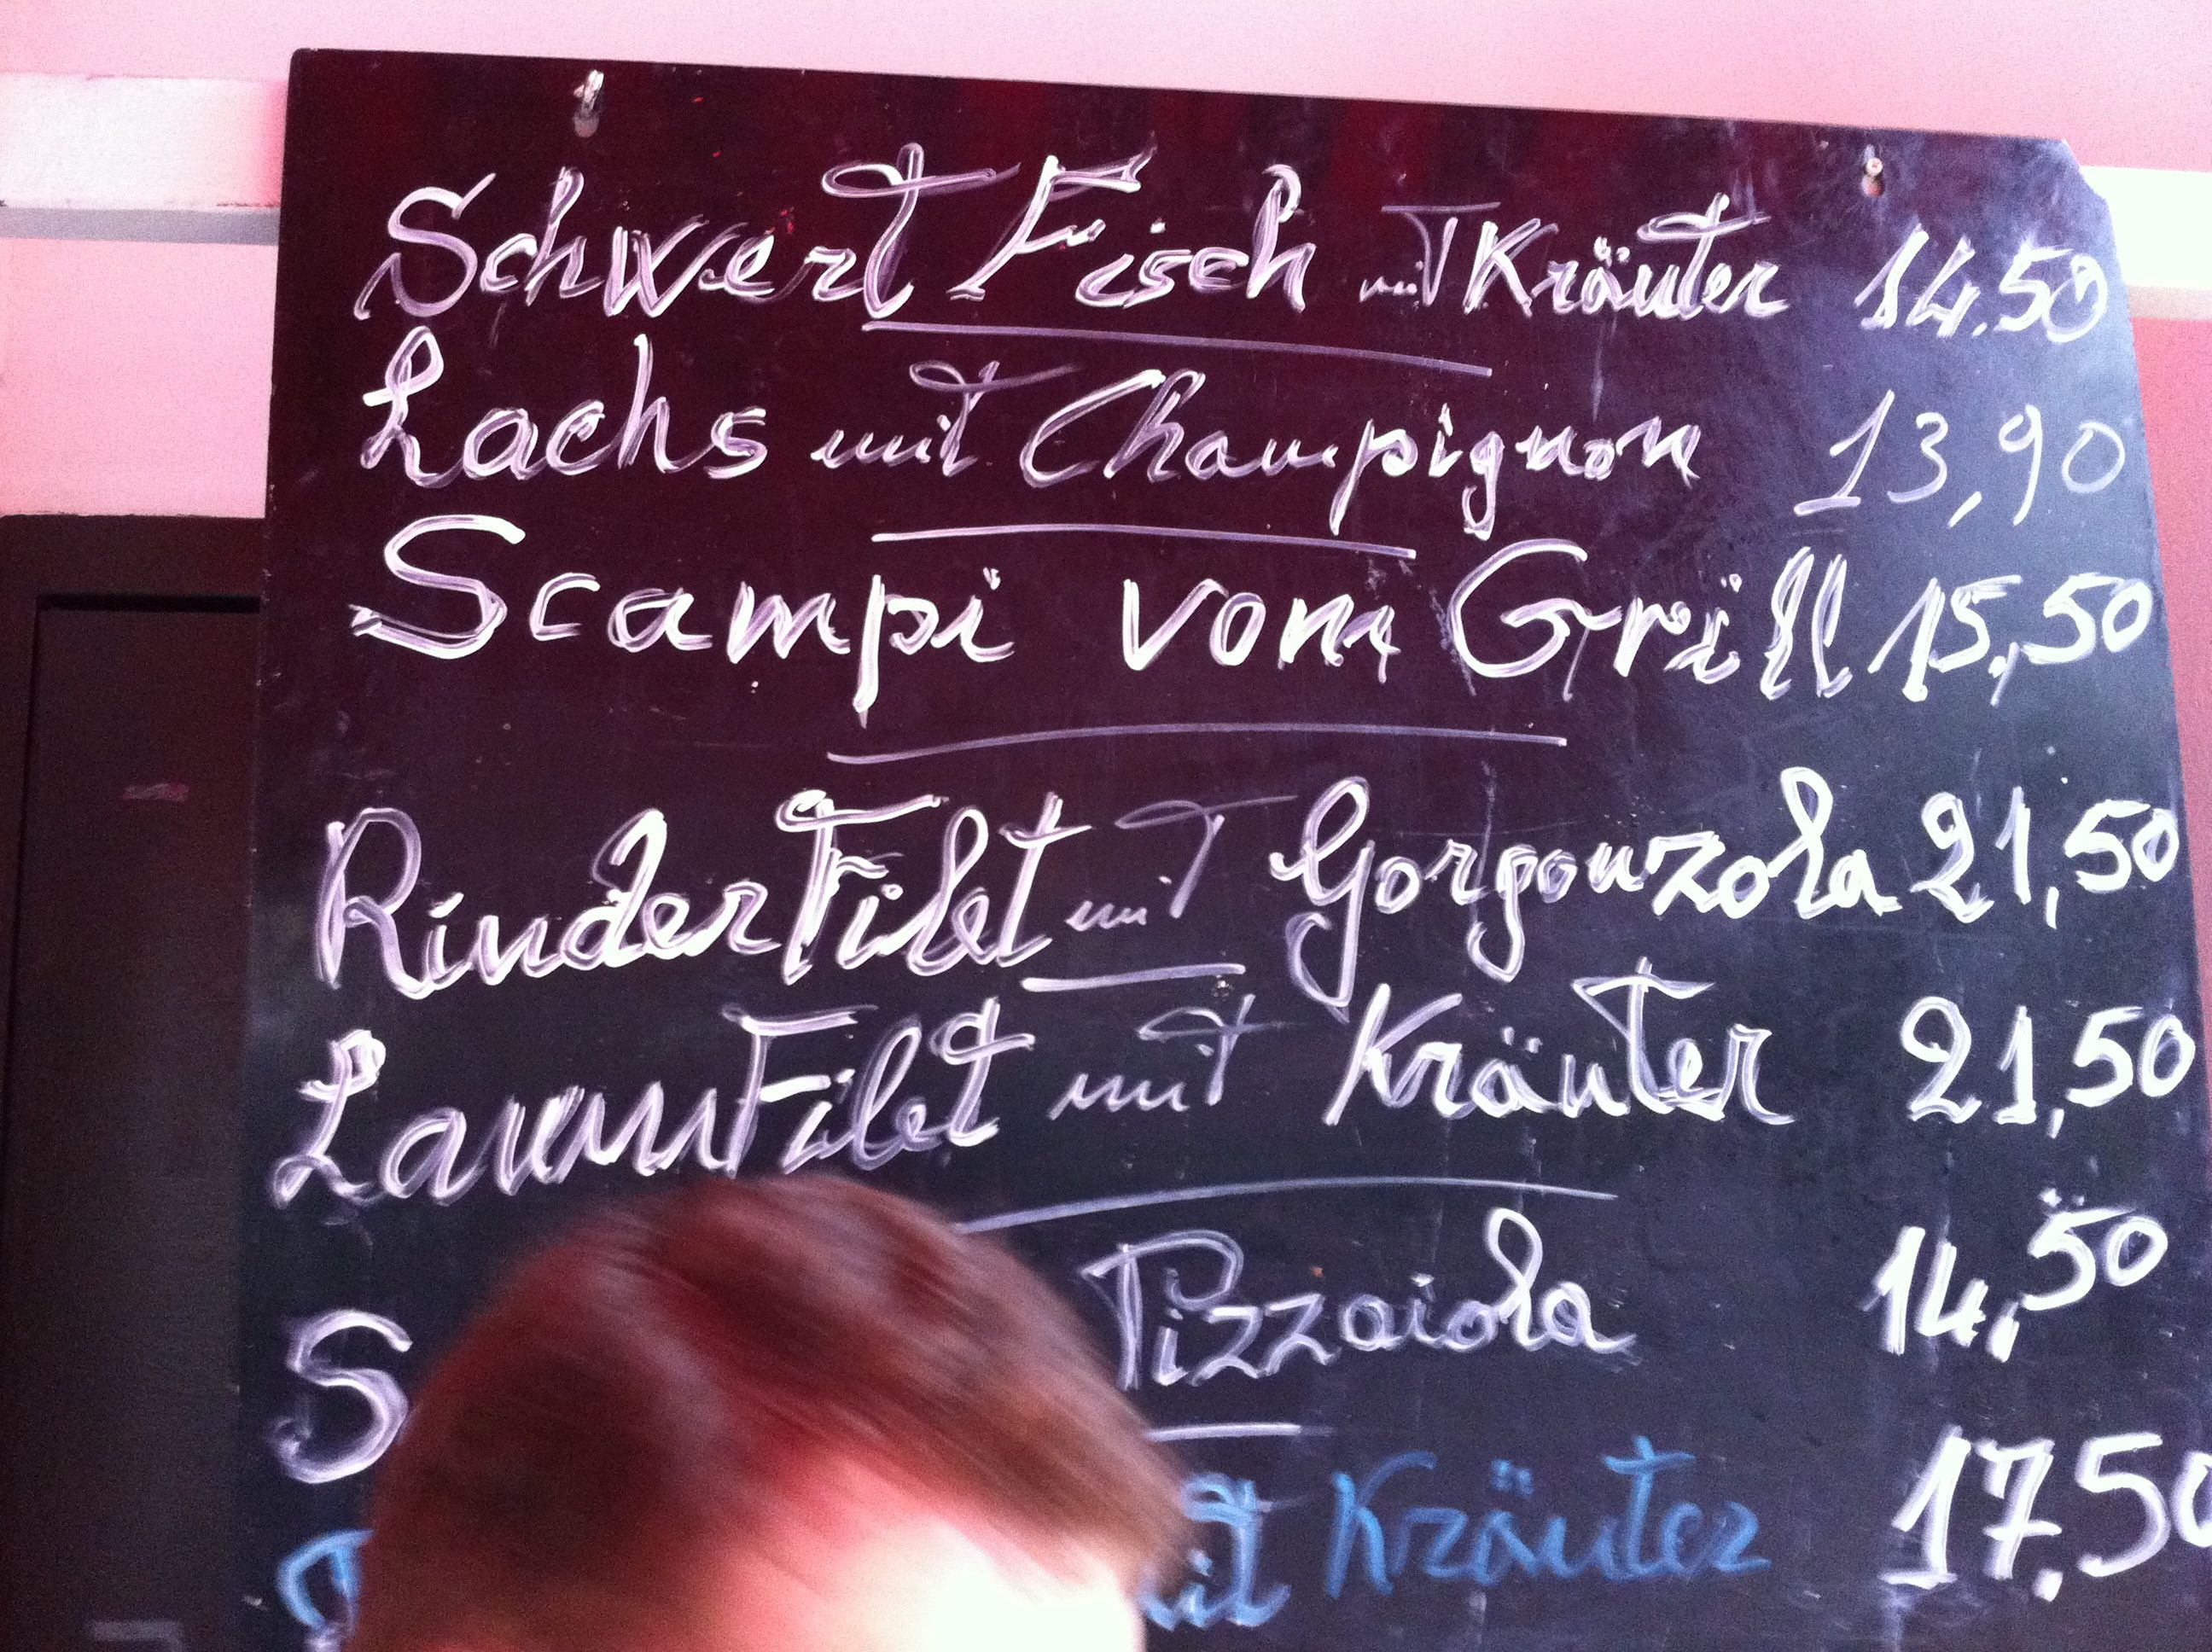 SchwertFisch mit Kräuter 14.50
Lachs mit Champignon 13,90
Scampi vom Grill 15,50
RinderFilet mit Gorgonzola 21,50
LammFilet mit Kräuter 21,50
Pizzaiola 14,50
Kräuter 17.50